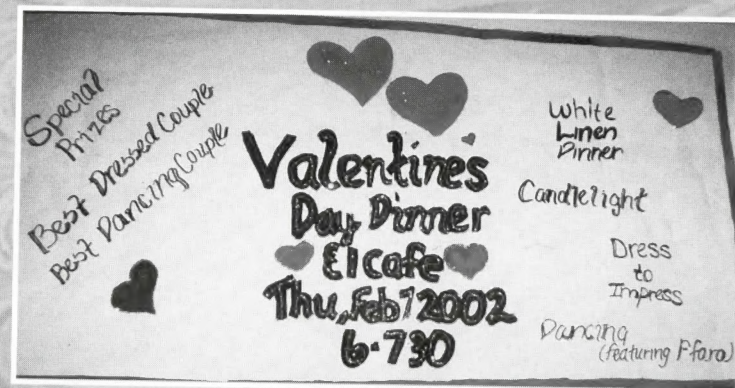 Special
Prizes
Best Dressed Couple
Best Dancing Couple
Valentines
Day Dinner
El Cafe
Thu, Feb 7 2002
6-730
White
Linen
Dinner
Candlelight
Dress
to
Impress
Dancing
(featuring